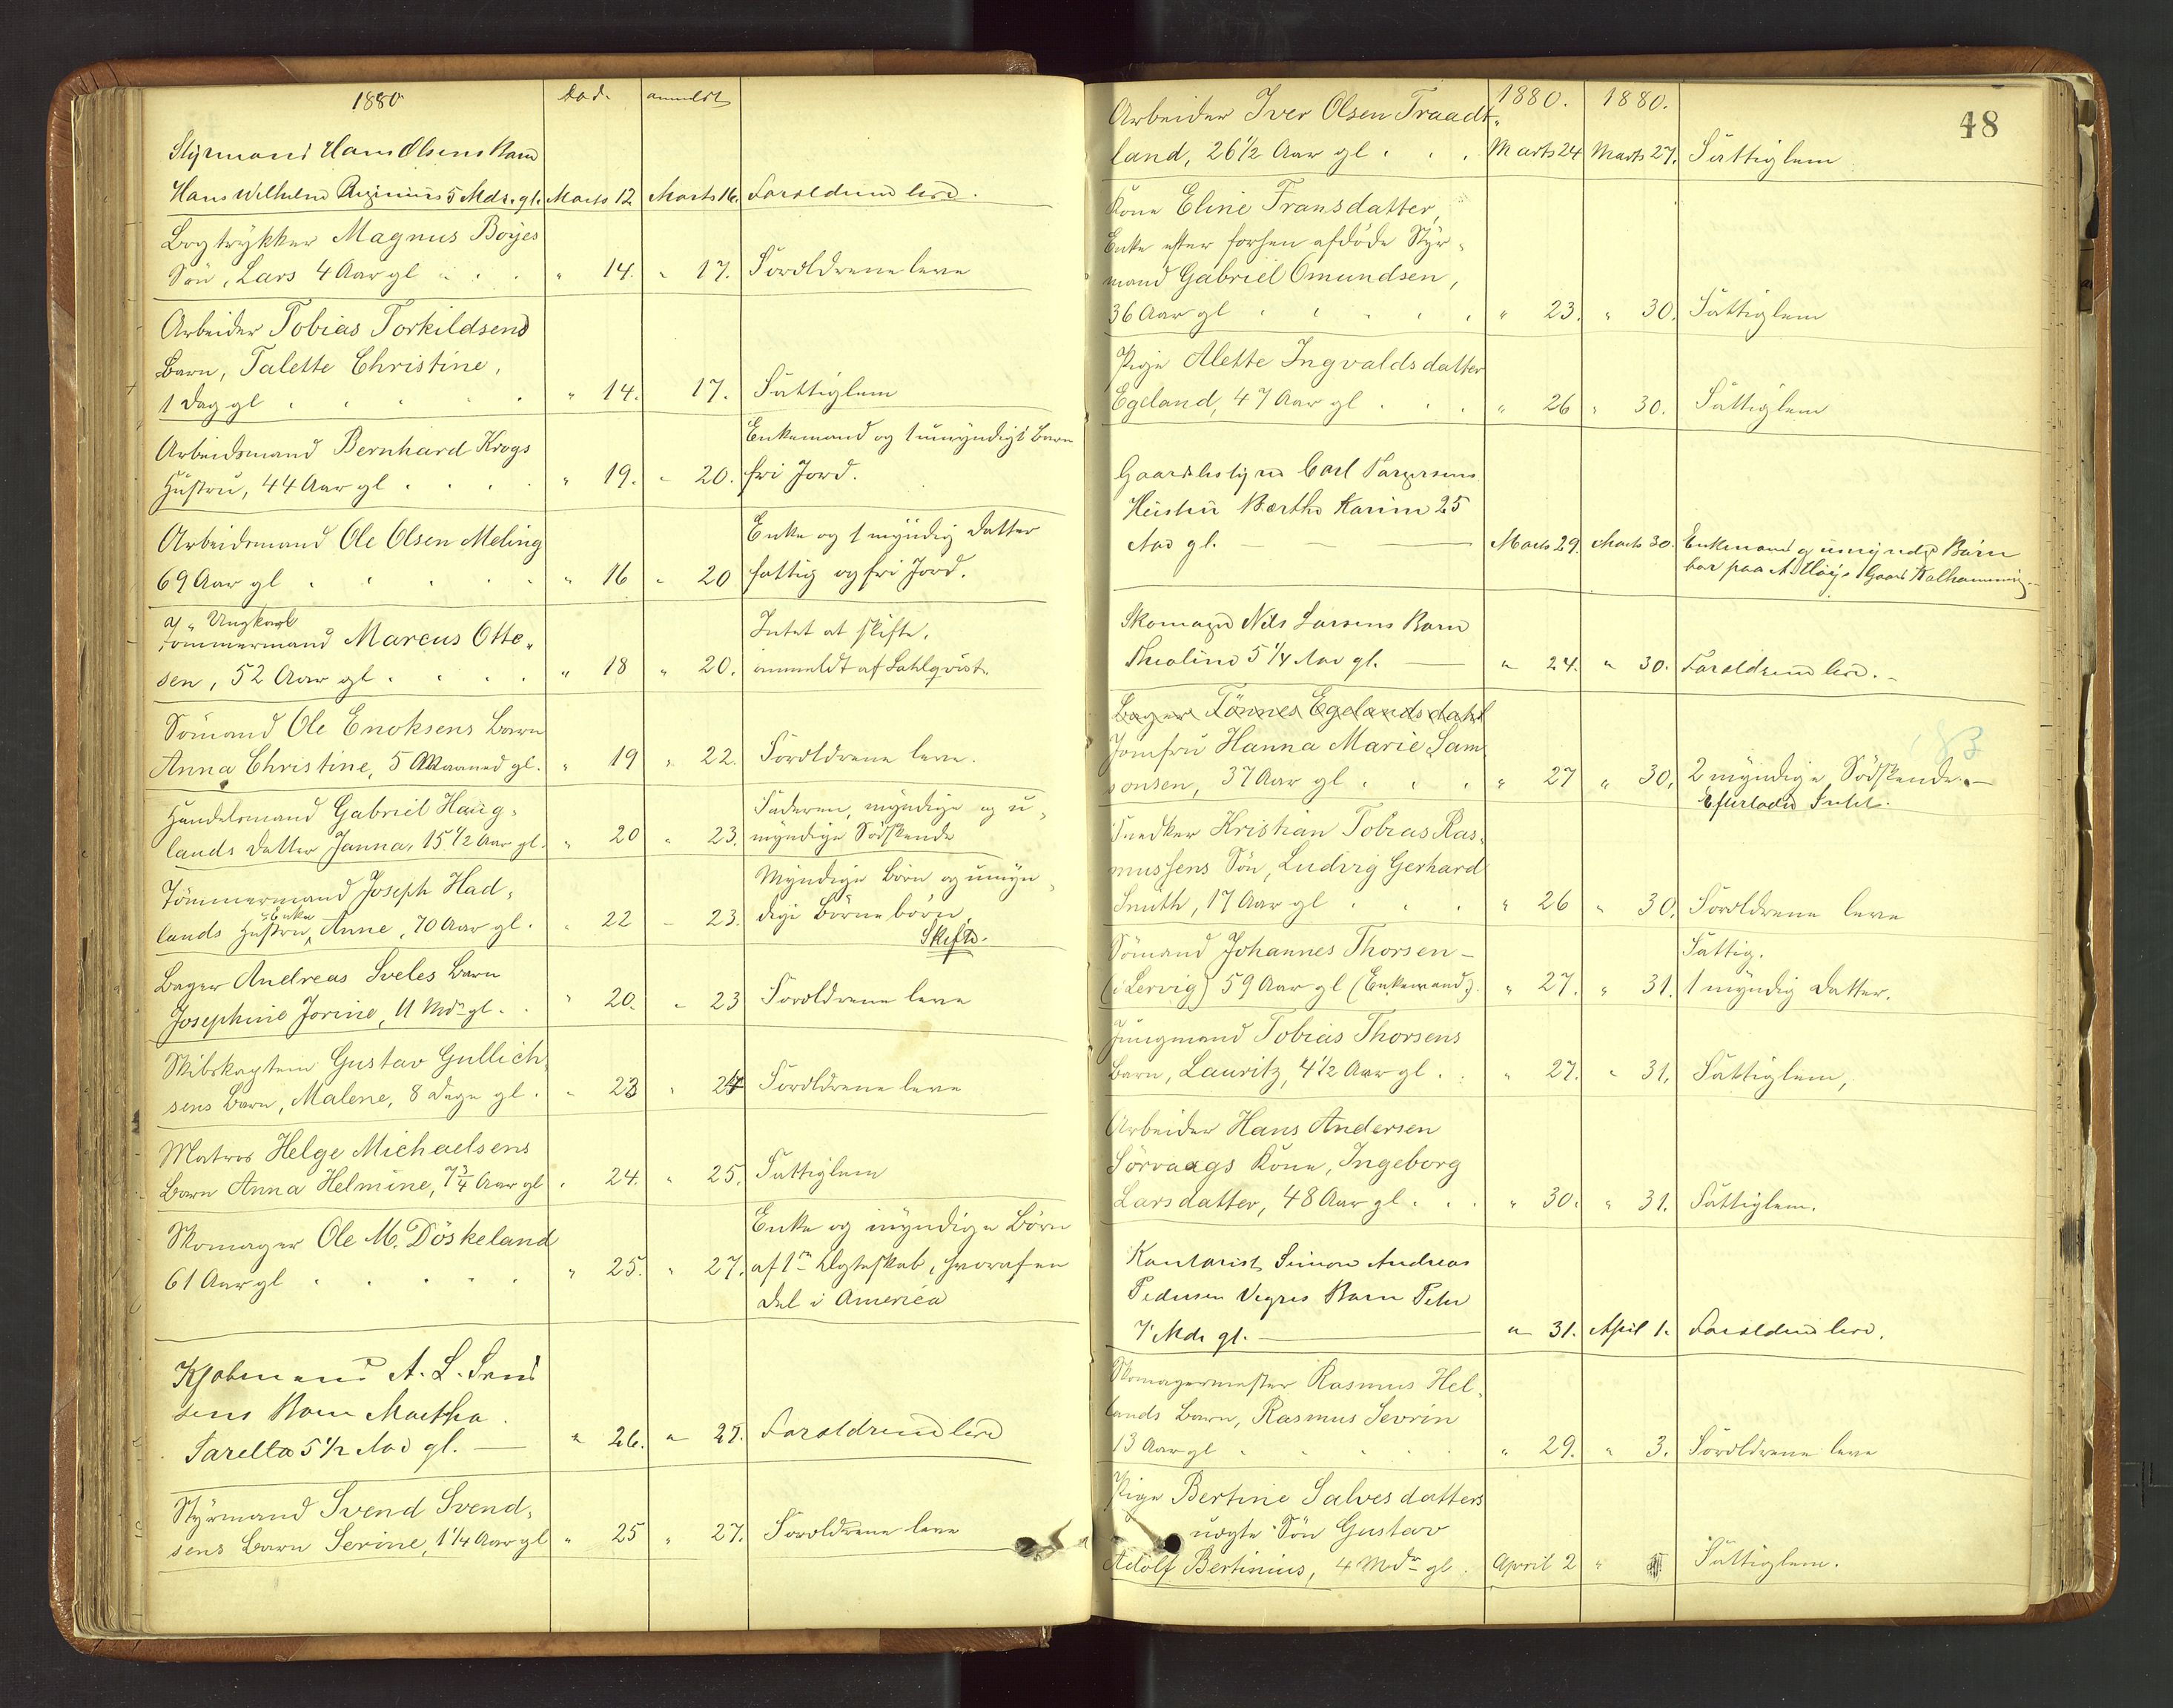 1880
Död.
anmeldt
Styrmand Hans Olsens Barn
Hans Wilhelm Reginius 5 Mdr. gl. Marts 12 Marts 16. Forældrene leve.
Bogtrykker Magnus Böyes
Sön, Lars 4 Aar gl . . . " 14. " 17. Forældrene leve
Arbeider Tobias Torkildsens
Barn, Talette Christine,
1 Dag gl . . . . . " 14. 17. Fattiglem
Arbeidsmand Bernhard Krogs Enkemand og 1 umyndigt Barn
Hustru, 44 Aar gl . . . . " 19. " 20. fri Jord.
Arbeidsmand Ole Olsen Meling Enke og 1 myndig Datter
69 Aar gl . . . . . " 16 " 20 fattig og fri Jord.
og Ungkarl
Tömmermand Marcus Otte- Intet at skifte.
sen, 52 Aar gl . . . . " 18 " 20. anmeldt af Dahlqvist.
Sömand Ole Enoksens Barn
Anna Christine, 5 Maaned gl. " 19 " 22. Forældrene leve.
Handelsmand Gabriel Haug- Faderen, myndige og u-
lands Datter Janna, 15 1/2 Aar gl. " 20 " 23. myndige Södskende
Tömmermand Joseph Had- Myndige Börn og umyn-
lands Hustru, Enke Anne, 70 Aar gl. " 22 " 23. dige Börnebörn.
Skifte.
Bager Andreas Sveles Barn
Josephine Jorine, 11 Mdr gl. . " 20. " 23 Forældrene leve
Skibskaptein Gustav Gullich-
sens Barn, Malene, 8 Dage gl. " 23 " 24 Forældrene leve
Matros Helge Michaelsens
Barn Anna Helmine, 7 3/4 Aar gl " 24. " 25. Fattiglem
Skomager Ole M. Döskeland Enke og myndige Börn
61 Aar gl . . . . . " 25. " 27. af 1ste Ægteskab, hvoraf en
Del i America
Kjøbmand A. L. Svend
sens Barn Martha
Tarella 5 1/2 Aar gl. — " 26. " 27. Forældrene leve
Styrmand Svend Svend-
sens Barn Serine, 1 1/4 Aar gl " 25 " 27. Forældrene leve
48
1880. 1880.
Arbeider Iver Olsen Traadt-
land, 26 1/2 Aar gl . . . Marts 24 Marts 27. Fattiglem
Kone Eline Fransdatter,
Enke efter forhen afdöde Styr-
mand Gabriel Omundsen,
36 Aar gl . . . . . " 23. " 30. Fattiglem
Pige Alette Ingvaldsdatter
Egeland, 47 Aar gl . . . " 26 " 30. Fattiglem
Gaardbestyrer Carl
Hustru Berthe Karine 25
Aar gl. — — — Marts 29. Marts 30. Enkemand og umyndige Börn
bor paa Gaard Kalhammer
Skomager Nils Larsens Barn
Theoline 5 1/4 Aar gl. — " 24. " 30. Forældrene leve. -
Bager Tönnes Egelandsdahl
Jomfru Hanna Marie Sam
sonsen, 37 Aar gl . . . " 27 " 30. 2 myndige Södskende. —
Efterlader Intet.
Snedker Kristian Tobias Ras-
mussens Sön, Ludvig Gerhard
Smith, 17 Aar gl . . . " 26 " 30. Forældrene leve
Sömand Johannes Thorsen - Fattig.
(i Lervig) 59 Aar gl (Enkemand). " 27. " 31. 1 myndig Datter.
Jungmand Tobias Thorsens
Barn, Lauritz, 4 1/2 Aar gl . . " 27. " 31. Fattiglem,
Arbeider Hans Andersen
Sörvaags Kone, Ingeborg
Larsdatter, 48 Aar gl . . . " 30. " 31. Fattiglem.
Kontorist Simon Andreas
Pedersen Vegres Barn Peter
7 Mdr gl. — " 31. April 1. Forældrene leve.
Skomagermester Rasmus Hel-
lands Barn, Rasmus Sevrin
13 Aar gl . . . . . " 29. " 3. Forældrene leve
Pige Bertine Salvesdatters
uægte Sön Gustav
Adolf Bertinius, 4 Mdr gl . April 2 " Fattiglem.